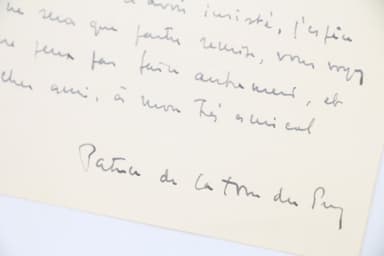 avoir insisté, j'espère
ne sera que partie remise, vous voyez
ne peux pas faire autrement, et
cher ami, à mon très amical
Patrice de La Tour du Pin